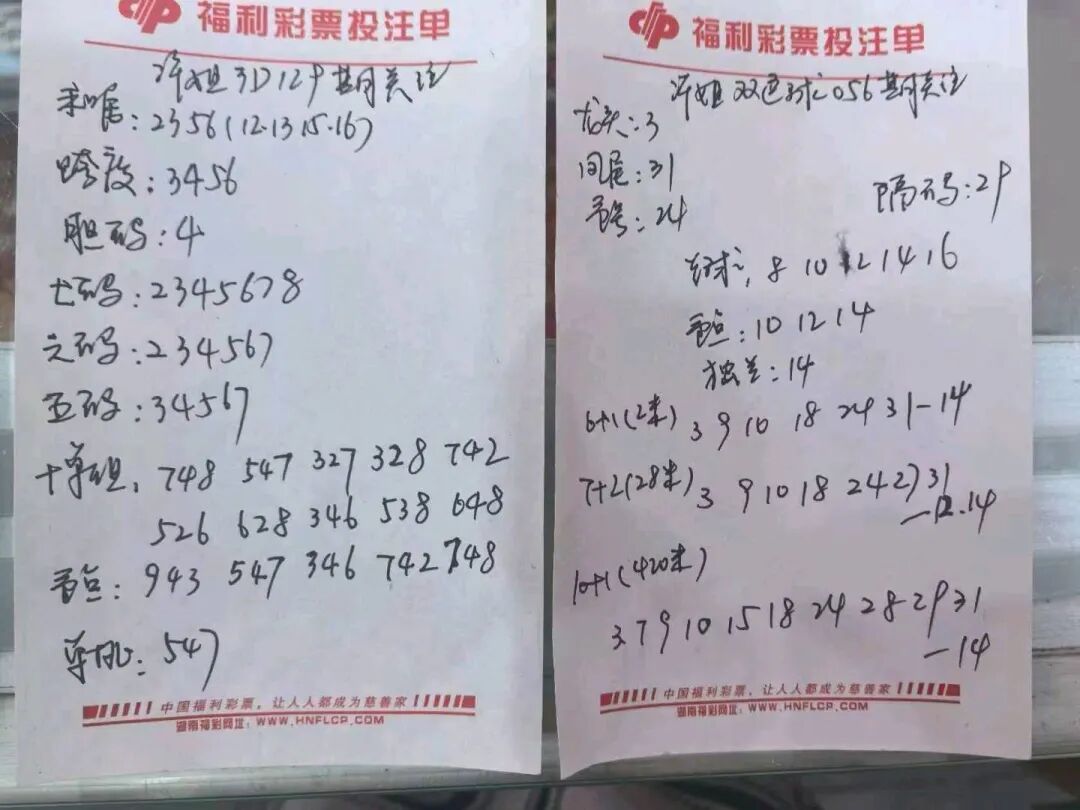 福利彩票投注单
3D129期关注
和尾：2356(12·13 15·16)
跨度：3456
胆码：4
七码：2345678
六码：234567
五码：34567
十单组，748 547 327 328 742
526 628 346 538 648
943 547 346 742 748
547
中国福利彩票，让人人都成为慈善家
湖南福彩网址：WWW.HNFLCP.COM
福利彩票投注单
双色球056期关注
龙头：3
凤尾：31
隔码：29
24
8 10 12 14 16
10 12 14
独兰：14
6+1(2米) 3 9 10 18 24 31-14
7+2(28米) 3 9 10 18 24 27 31
-12·14
10+1(420米)
3 7 9 10 15 18 24 28 29 31
-14
中国福利彩票，让人人都成为慈善家
湖南福彩网址：WWW.HNFLCP.COM